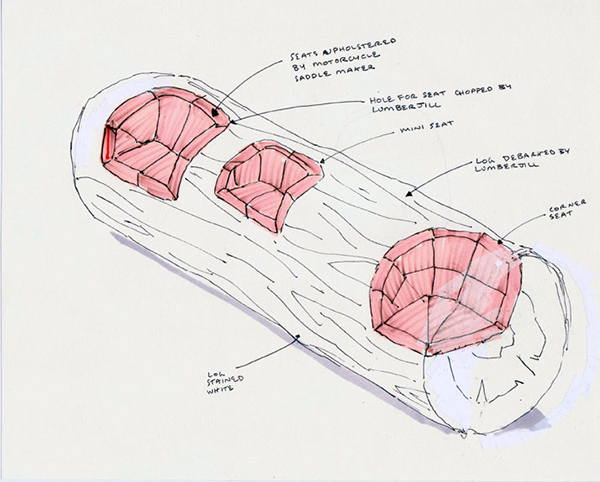 SEATS UPHOLSTERED
BY MOTORCYCLE
SADDLE MAKER
HOLE FOR SEAT CHOPPED BY
LUMBERJILL
MINI SEAT
LOG DEBARKED BY
LUMBERJILL
CORNER
SEAT
LOG
STAINED
WHITE